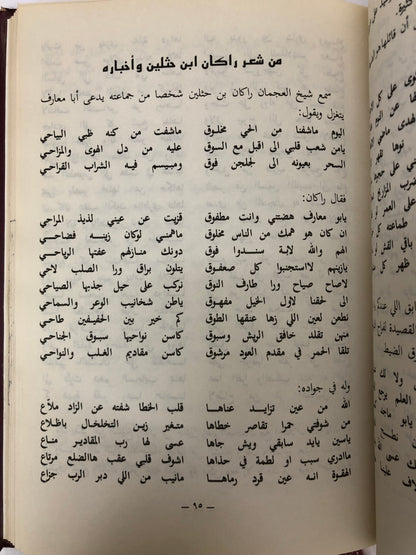 من شعر راكان ابن حثلين وأخباره
سمع شيخ العجمان راكان بن حثلين شخصا من جماعته يدعى أبا معارف
يتغزل ويقول:
اليوم ماشفنا من الحي مخلوق ماشفت من كنه ظبي البياحي
يامن شعب قلبي الى اقبل مع السوق عليه من دل الهوى والمزاحي
السحر بعيونه الى لجلجن فوق ومبيسم فيه الشراب القراحي
فقال راكان:
يابو معارف هضتني وانت مطفوق قزيت عن عيني لذيذ المراحي
ان كان هو همك من الناس مخلوق ماهمني لوكان زينه فضاحي
الهم والله لابة سندوا فوق دونك منازلهم عفتها الرياحي
يازينهم لاستجنبوا كل صعفوق يتلون براق ورا الصلب لاحي
لاصاح صياح ورا طارف النوق نركب على حيل جذبها الصياحي
الى لحقنا لاول الخيل مفهوق ياطن شخانيب الوعر والسماحي
نطعن لعين اللي زها عنقها الطوق كم خير بين الجفيفين طاحي
منهن تقلد خافق الريش وسبوق كاسن نواحيها سبوق الجناحي
تلقا الحمر في مقدم العود مرشوق كاسن مقاديم الغلب والنواحي
وله في جواده:
الله من عين تزايد عناها قلب الخطا شفته عن الزاد ملاّع
من شوفتي حمرا تقاصر خطاها متغير زين التخلخال باظلاع
ياسين يايد سابقي ويش جاها عسى لها رب المقادير مناع
ماادري سبب او لطمة في حذاها اشرف قلبي عقب هاالضلع مرتاع
الهقوة انه عين قرد رماها مانيب من اللي دبر الرب جزاع
— ٦٥ —